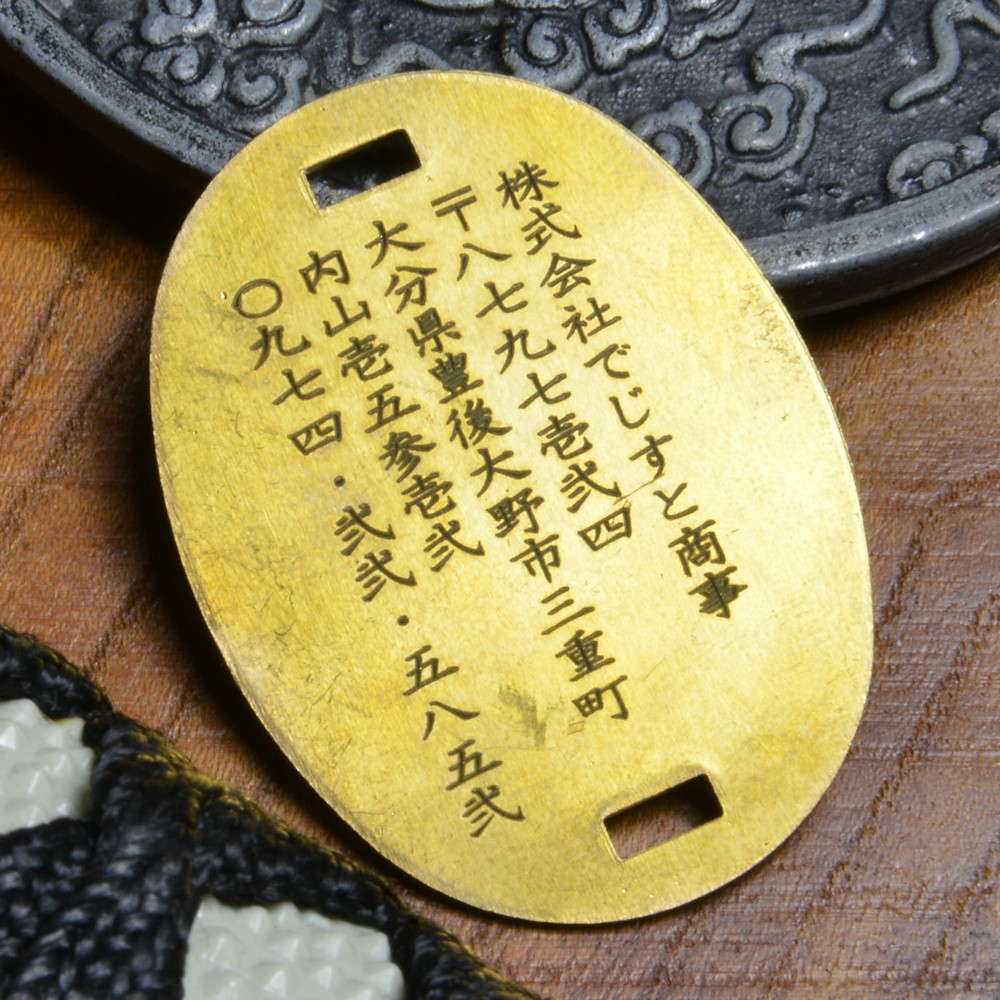 株式会社でじすと商事
〒八七九七壱弐四
大分県豊後大野市三重町
内山壱五参壱弐
〇九七四・弐弐・五八五弐